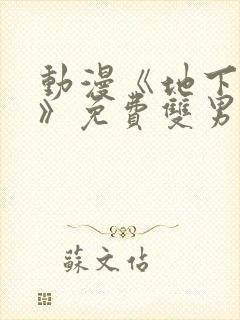 動漫《地下
》免費雙男
蘇文佑